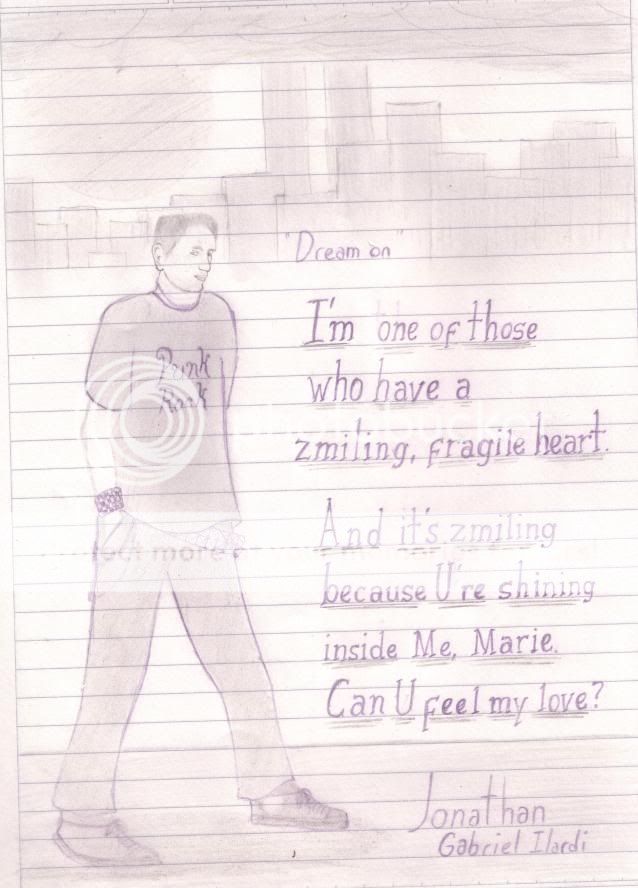 "Dream on"
I'm one of those
who have a
zmiling, fragile heart.
Punk
Rock
And it's zmiling
because U're shining
inside Me, Marie.
Can U feel my love?
Jonathan
Gabriel Ilardi